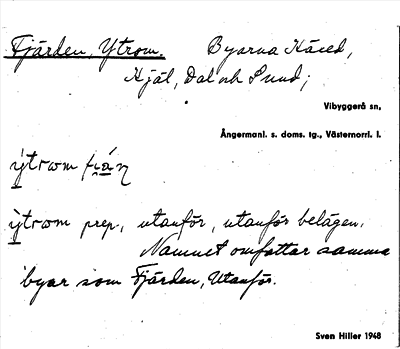 Fjärden, Ytrom. Byarna Häred,
Hjäl, Dal och Sund;
Vibyggerå sn,
Ångermanl. s. doms. tg., Västernorrl. l.
ỳtrom
ỳtrom prep., utanför, utanför belägen.
Namnet omfattar samma
byar som Fjärden, Utanför.
Sven Hiller 1948